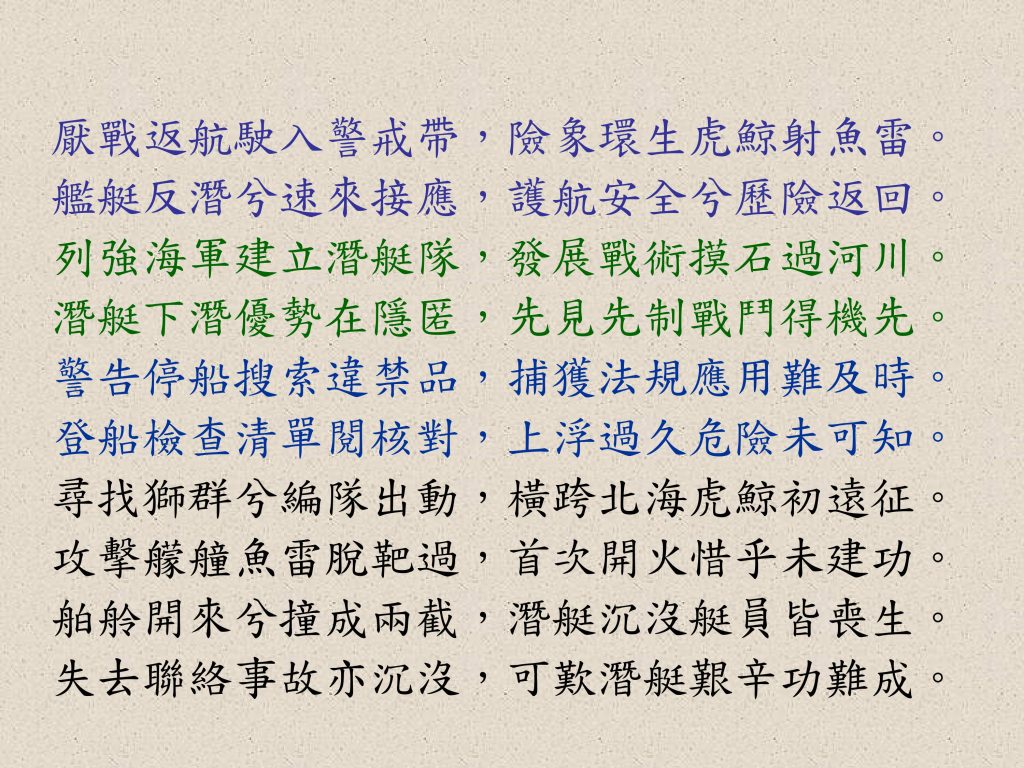 厭戰返航駛入警戒帶，險象環生虎鯨射魚雷。
艦艇反潛兮速來接應，護航安全兮歷險返回。
列強海軍建立潛艇隊，發展戰術摸石過河川。
潛艇下潛優勢在隱匿，先見先制戰鬥得機先。
警告停船搜索違禁品，捕獲法規應用難及時。
登船檢查清單閱核對，上浮過久危險未可知。
尋找獅群兮編隊出動，橫跨北海虎鯨初遠征。
攻擊艨艟魚雷脫靶過，首次開火惜乎未建功。
舶舲開來兮撞成兩截，潛艇沉沒艇員皆喪生。
失去聯絡事故亦沉沒，可歎潛艇艱辛功難成。